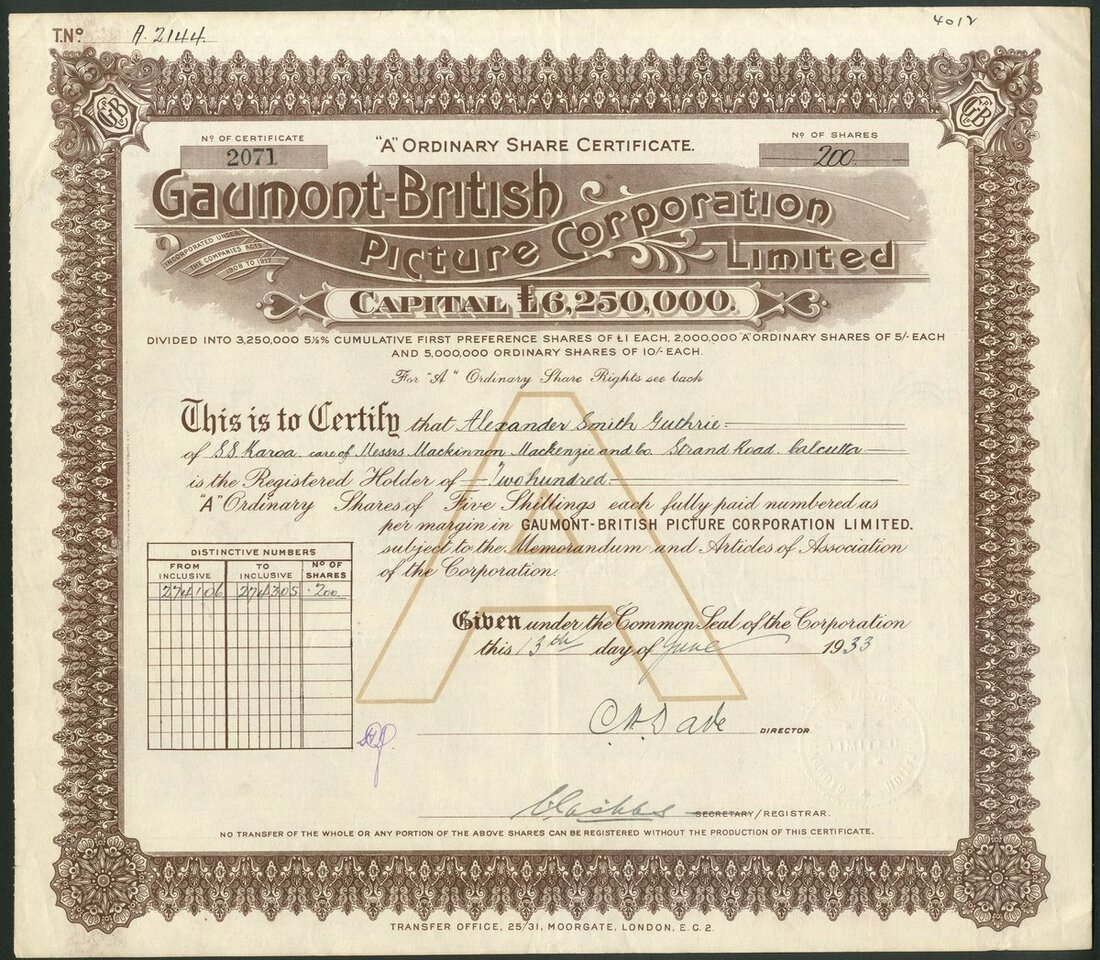 T.Nº A.2144
4012
GB
GB
Nº OF CERTIFICATE
2071
"A" ORDINARY SHARE CERTIFICATE.
Nº OF SHARES
200
Gaumont-British
Picture Corporation
Limited
INCORPORATED UNDER
THE COMPANIES ACTS
1908 TO 1917
CAPITAL £6,250,000.
DIVIDED INTO 3,250,000 5½% CUMULATIVE FIRST PREFERENCE SHARES OF £1 EACH, 2,000,000 "A" ORDINARY SHARES OF 5/- EACH
AND 5,000,000 ORDINARY SHARES OF 10/- EACH.
For "A" Ordinary Share Rights see back
This is to Certify that Alexander Smith Guthrie
of S.S. Karoa care of Messrs Mackinnon Mackenzie and Co Strand Road Calcutta
is the Registered Holder of Two hundred
"A" Ordinary Shares of Five Shillings each fully paid numbered as
per margin in GAUMONT-BRITISH PICTURE CORPORATION LIMITED.
subject to the Memorandum and Articles of Association
of the Corporation.
DISTINCTIVE NUMBERS
FROM INCLUSIVE TO INCLUSIVE Nº OF SHARES
274106 274305 200
Given under the Common Seal of the Corporation
this 13th day of June 1933
A
DIRECTOR
LIMITED
SECRETARY/REGISTRAR.
NO TRANSFER OF THE WHOLE OR ANY PORTION OF THE ABOVE SHARES CAN BE REGISTERED WITHOUT THE PRODUCTION OF THIS CERTIFICATE.
TRANSFER OFFICE, 25/31, MOORGATE, LONDON, E.C.2.